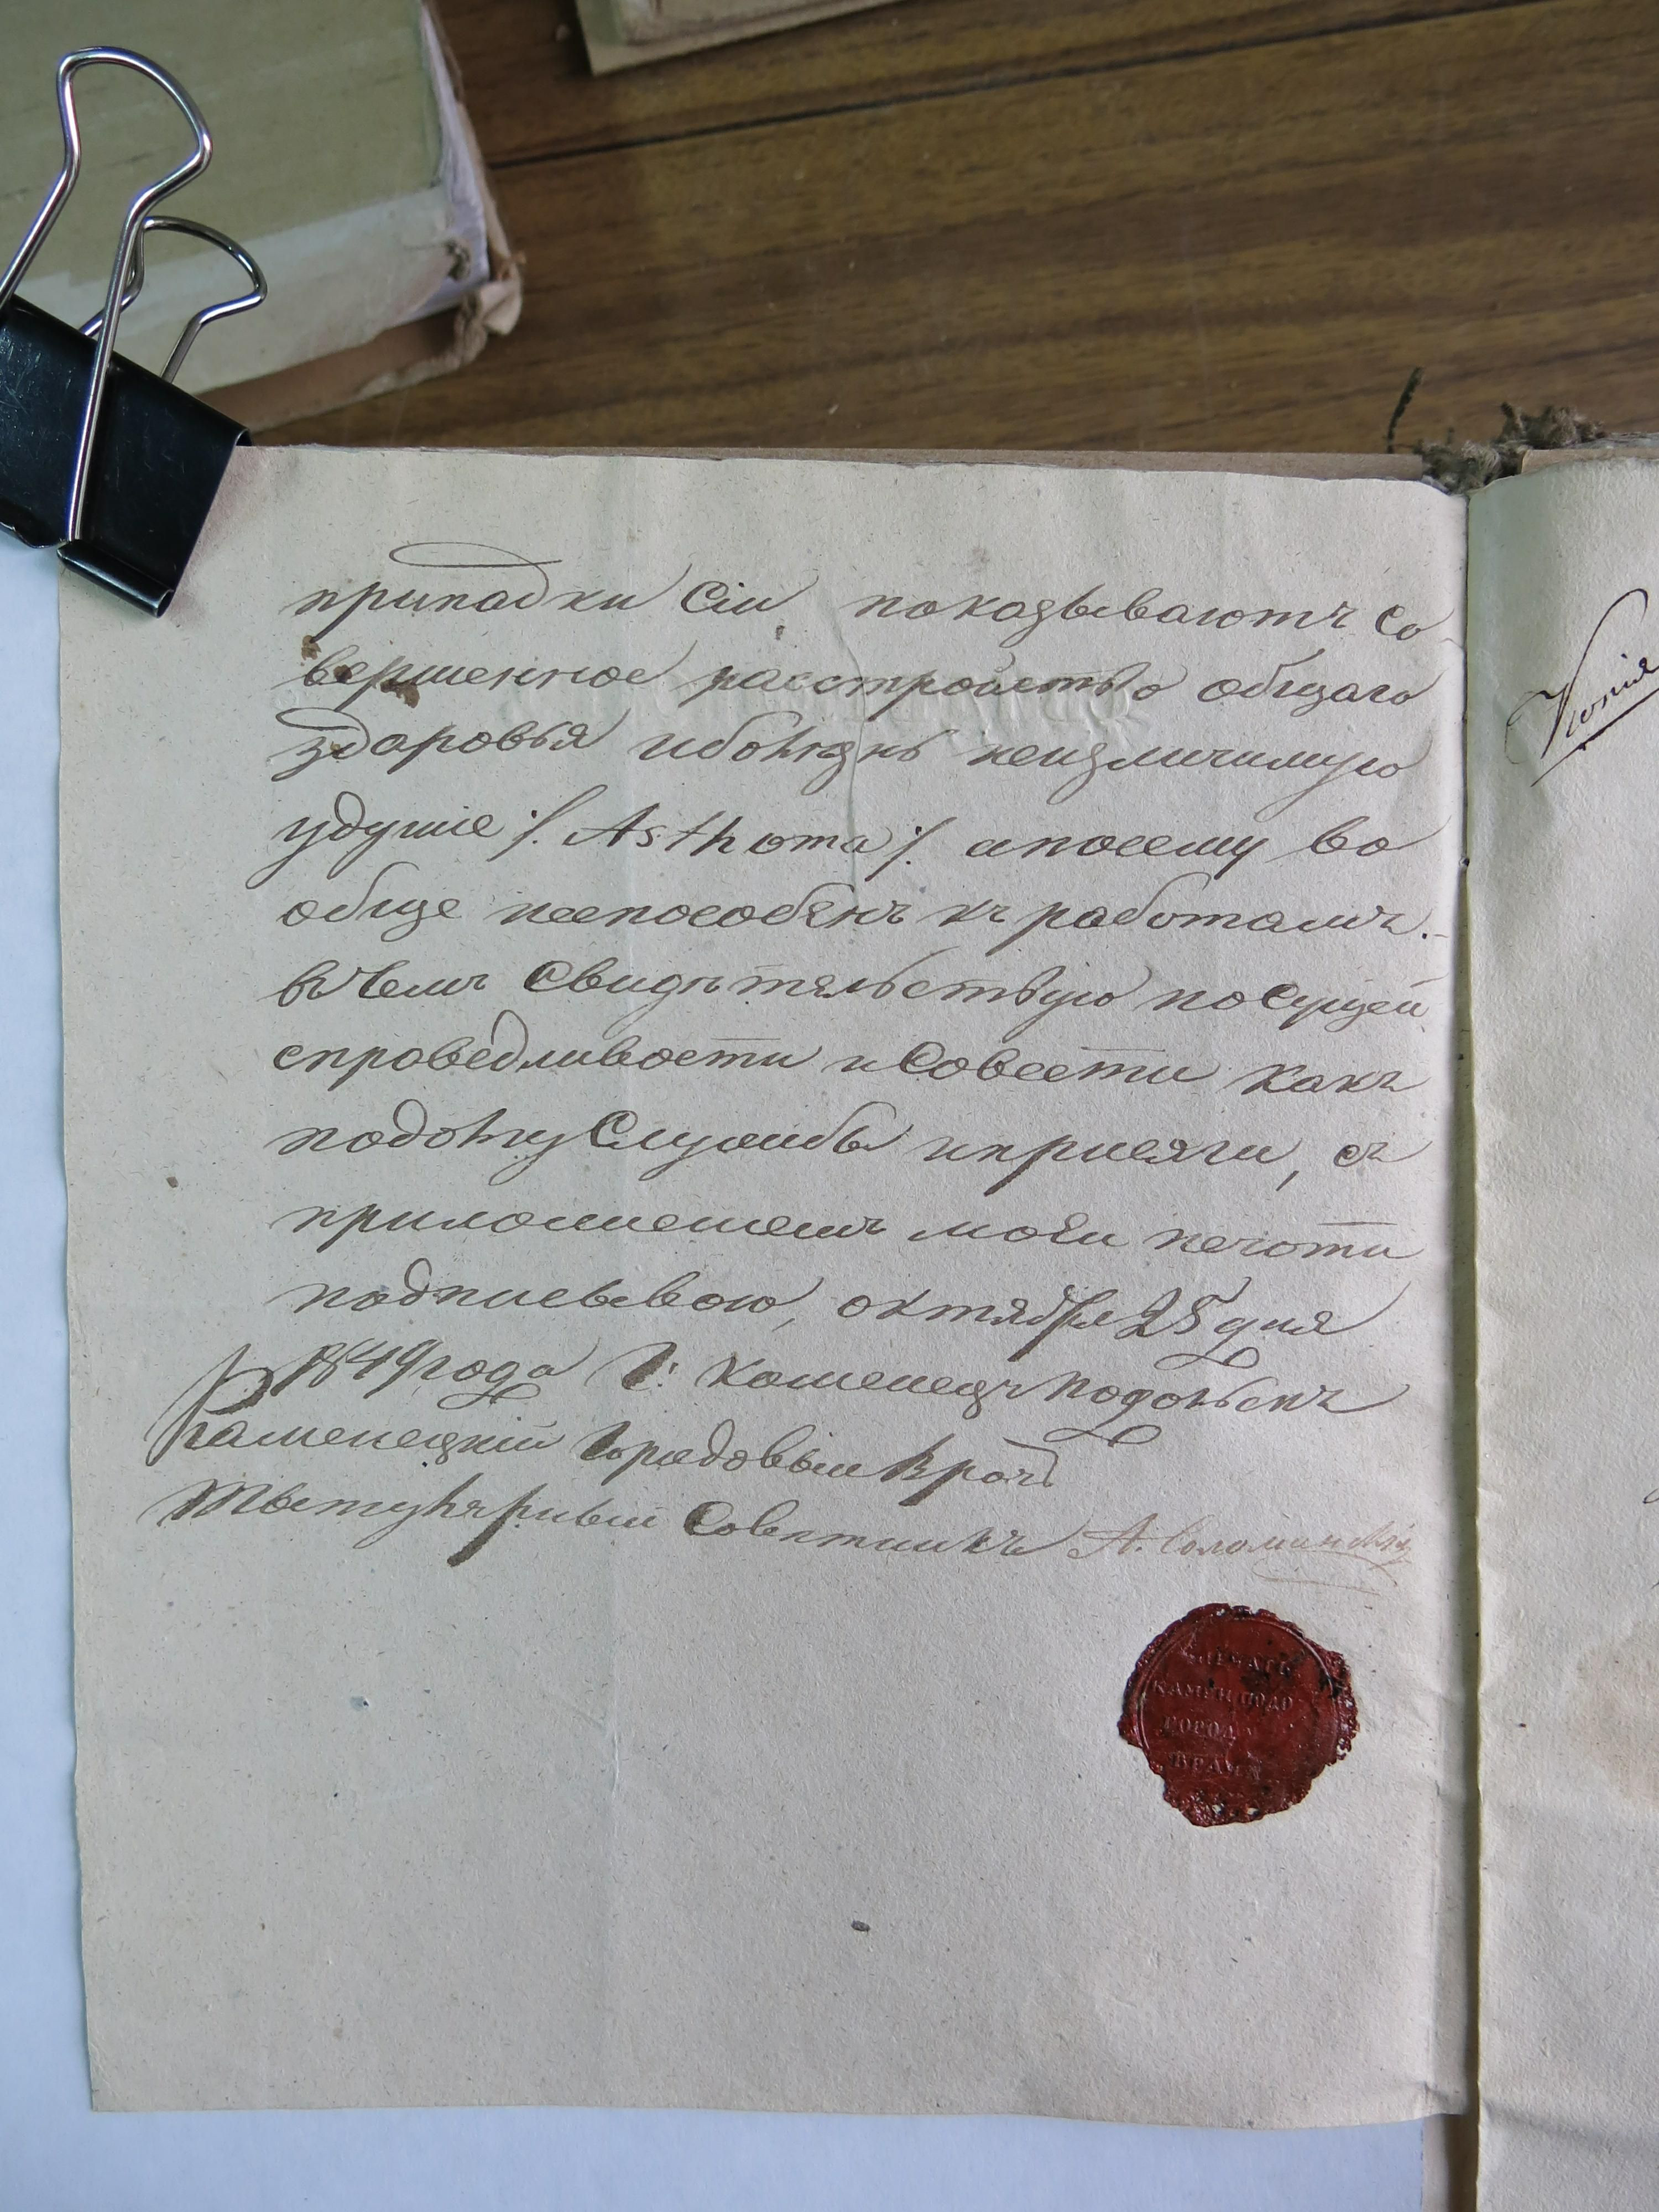 припадки Сіи показываютъ со
вершенное растройство общаго
здаровья и болезнь неизличимую
удушіе /: Asthma :/ а посему во
обще неспособенъ къ работамъ.
въ чемъ Свидѣтельствую по Сущей
справедливости и Совести какъ
по долгу Службы и присяги, съ
приложениемъ моей печати
подписываю, октября 25 дня
1849 года Г: Каменецъ Подольскъ
Каменецкій Городовый Врачъ
Титулярный Совѣтникъ А.
ПЕЧАТЬ
КАМЕН ПОДО
ГОРОД
ВРАЧА
Копія